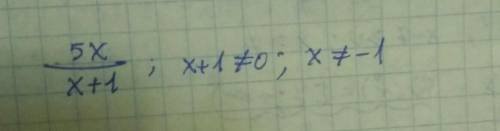 5x/x+1 ; x+1≠0; x≠-1